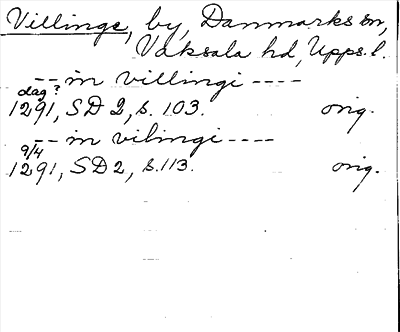 Villinge, by, Danmarks sn,
Vaksala hd, Upps. l.
-- in villingi ----
dag?
1291, SD 2, s. 103. orig.
-- in vilingi ----
9/4
1291, SD 2, s. 113. orig.